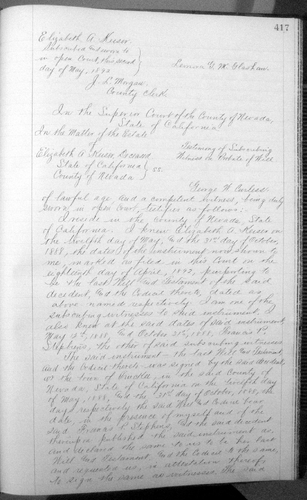 417
Elizabeth A. Keiser
Subscribed and sworn to
in open Court, this second
day of May, 1892.
J. L. Morgan
County Clerk.
In the Superior Court of the County of Nevada,
State of California
In the Matter of the Estate
of
Elizabeth A. Keiser Deceased
Testimony of Subscribing
Witness on Probate of Will
State of California
County of Nevada
ss.
George W.
of lawful age, and a competent witness, being duly
sworn in open Court, testifies as follows:
I reside in the County of Nevada, State
of California. I knew Elizabeth A. Keiser on
the twelfth day of May, and the 31st day of October,
1888, the dates of the Instrument now shown to
me, marked as filed in this Court on the
eighteenth day of April, 1892, purporting to
be the last Will and Testament of the said
decedent, and the Codicil thereto, dated as
above named respectively. I am one of the
subscribing witnesses to said instrument. I
also knew at the said dates of said instrument
May 12th 1888, and October 31st, 1888,
Stephens, the other of said subscribing witnesses
The said instrument the last Will and Testament,
and the Codicil thereto was signed by the said decedent,
at the town of in the said County of
Nevada, State of California on the twelfth day
of May, 1888, and the 31st day of October, 1888, the
days respectively the said Will and Codicil bear
date, in the presence of myself and of the
said Stephens, and the said decedent
thereupon published the said instrument as,
and declared the same to us to be her last
Will and Testament, and the Codicil of the same,
and requested us, in attestation thereof,
to sign the same as witnesses. The said